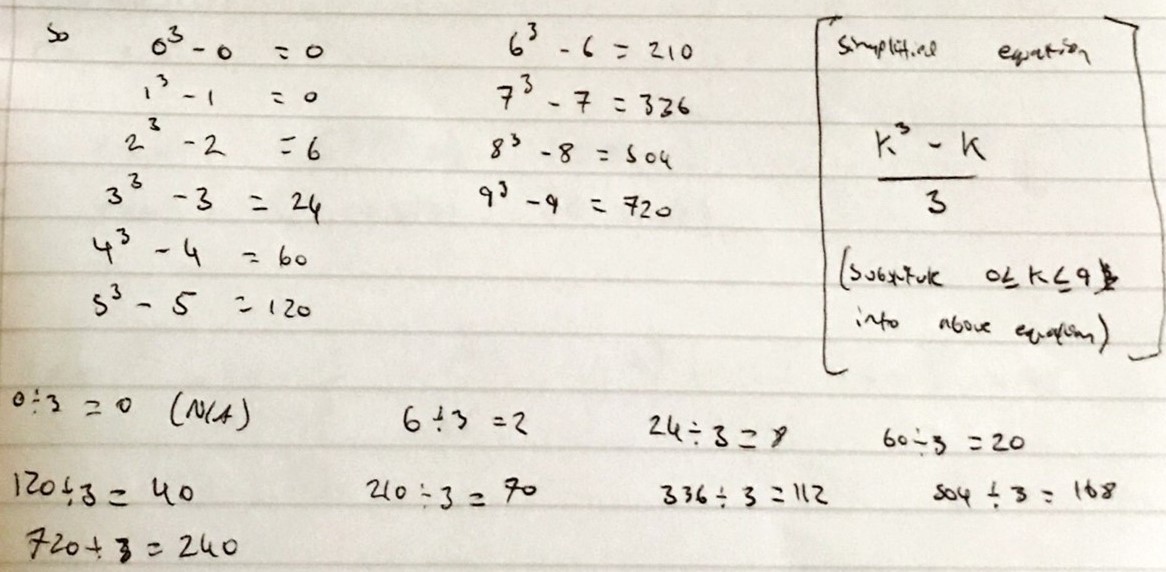 So
0³ - 0 = 0
1³ - 1 = 0
2³ - 2 = 6
3³ - 3 = 24
4³ - 4 = 60
5³ - 5 = 120
6³ - 6 = 210
7³ - 7 = 336
8³ - 8 = 504
9³ - 9 = 720
equation
K³ - K
3
0 ≤ K ≤ 9
into above equation)
0 ÷ 3 = 0 (N/A)
6 ÷ 3 = 2
24 ÷ 3 = 8
60 ÷ 3 = 20
120 ÷ 3 = 40
210 ÷ 3 = 70
336 ÷ 3 = 112
504 ÷ 3 = 168
720 ÷ 3 = 240